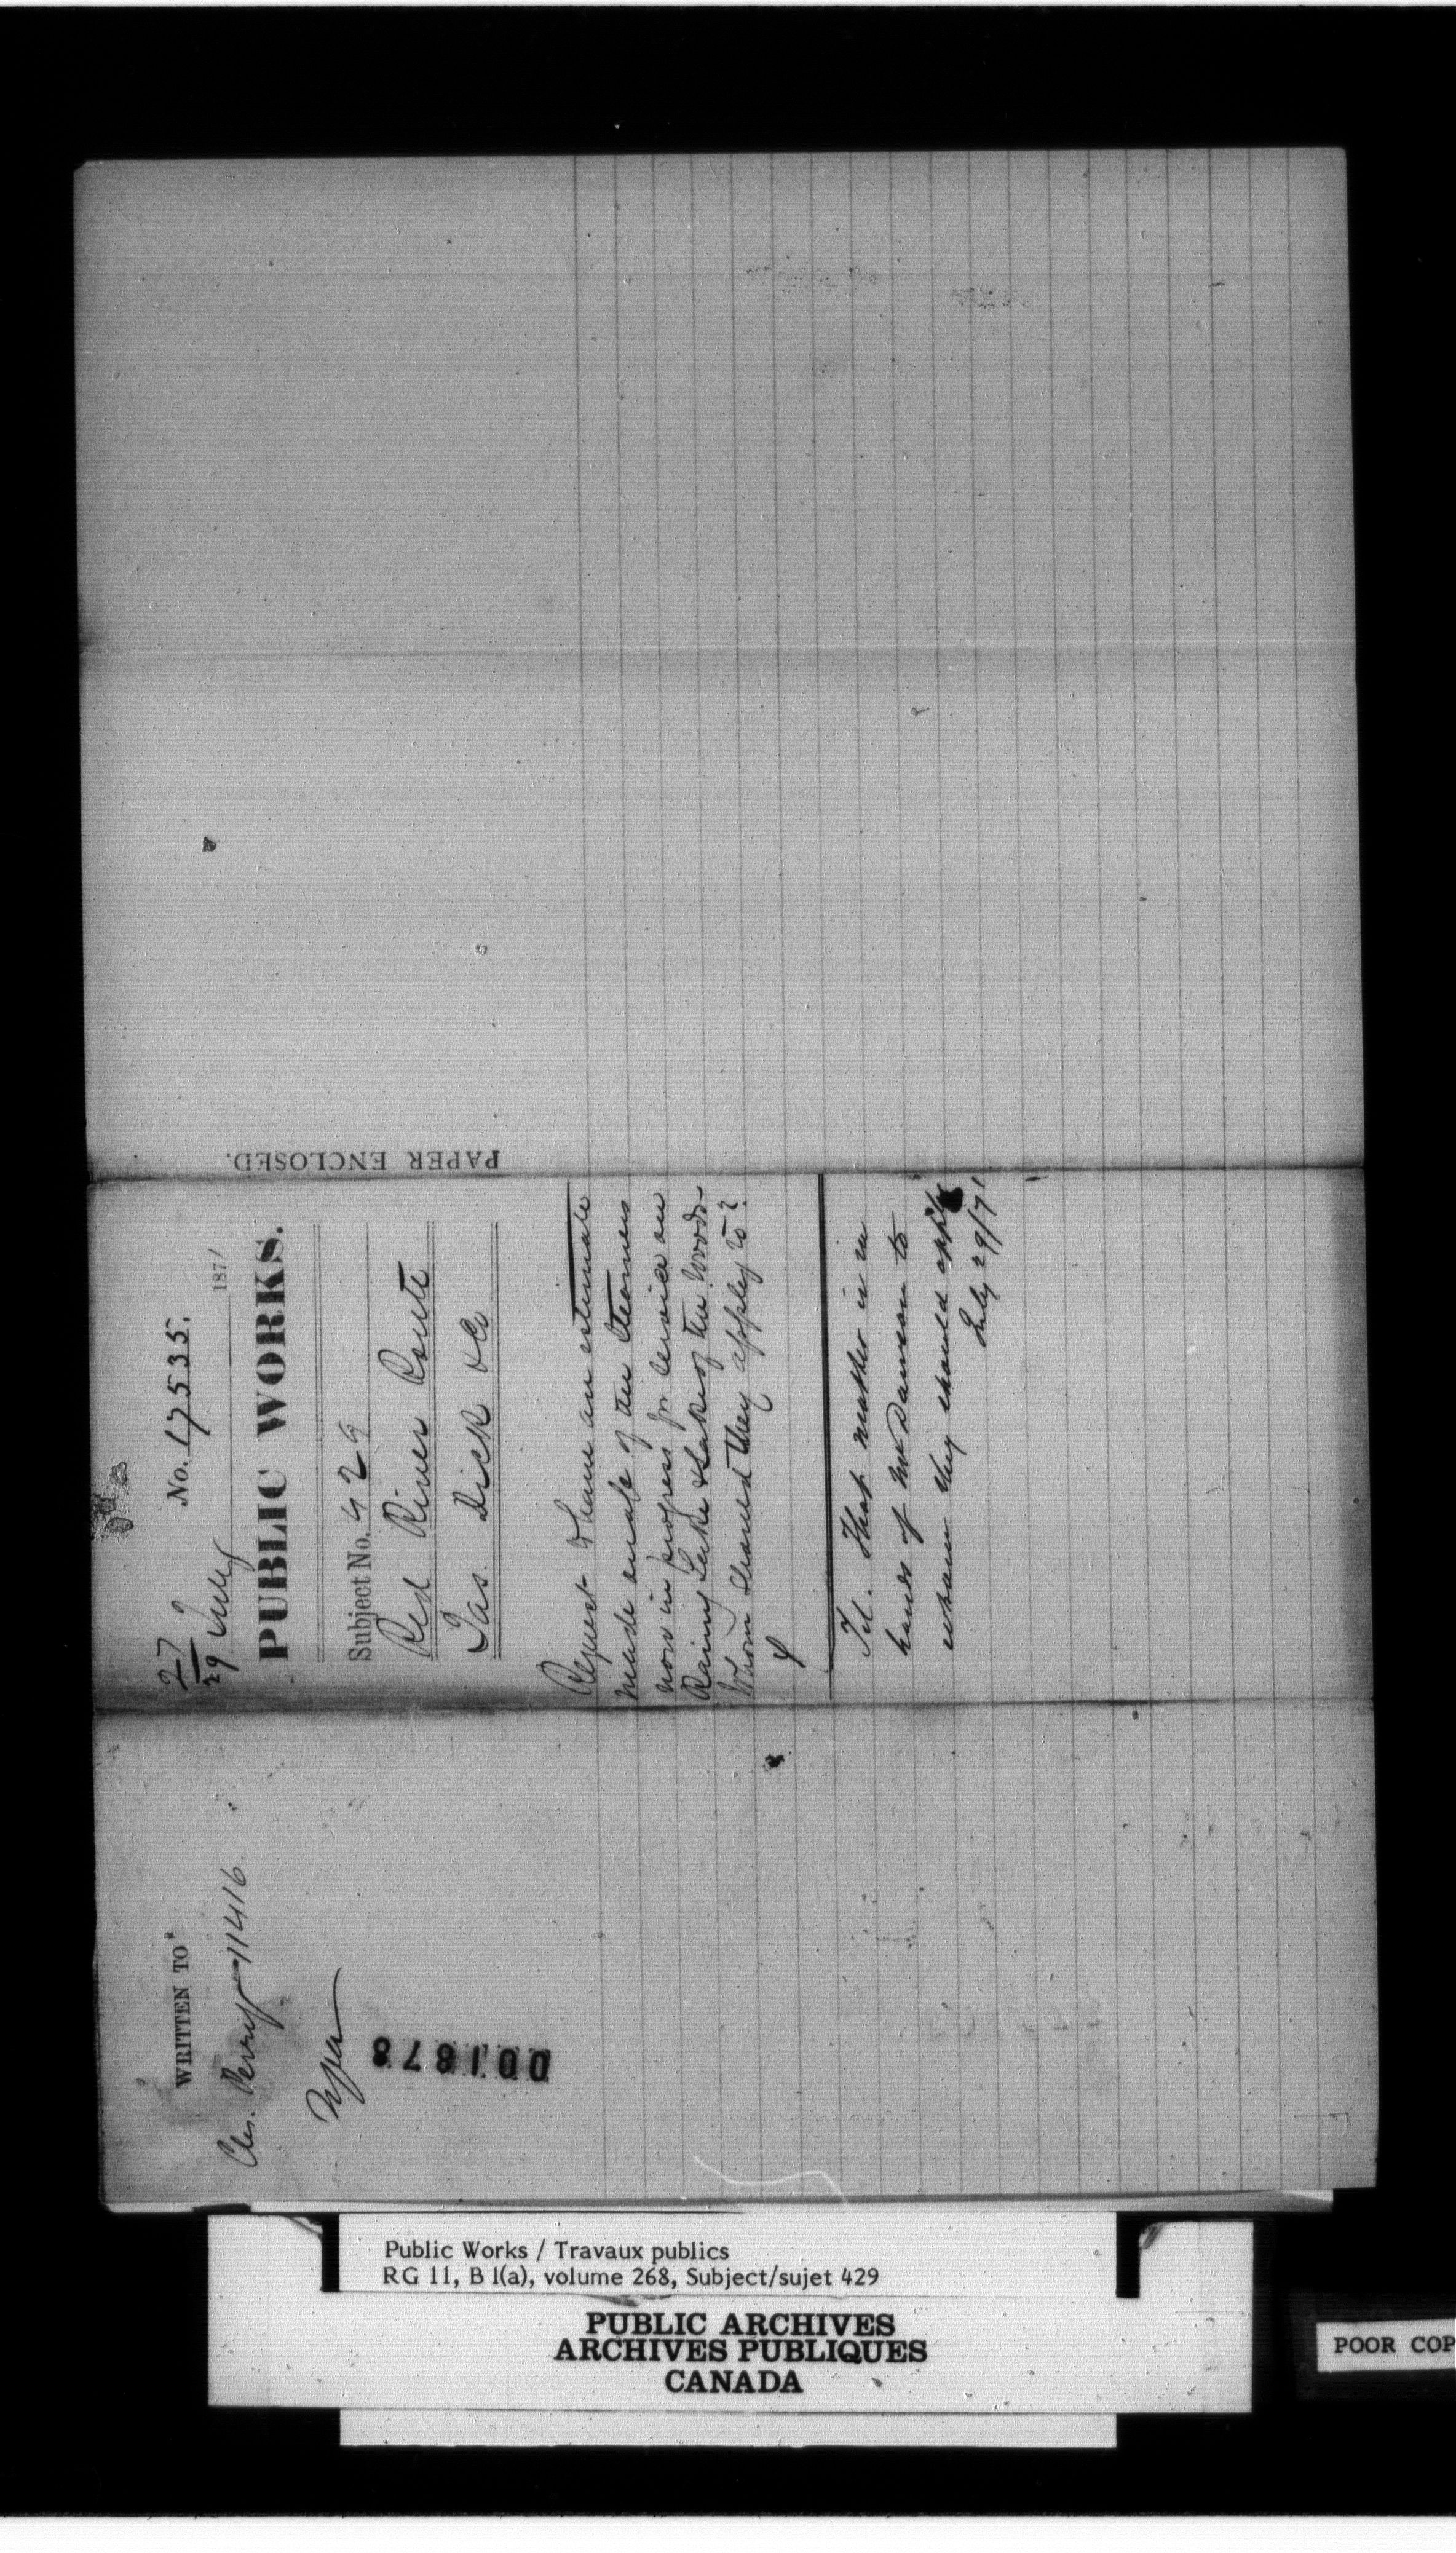 27
29 July
No. 17535.
1871
PUBLIC WORKS.
Subject No. 429
Red River Route
Jas. Dick & Co
Request to have an estimate
made out of the steamers
now in progress for service on
Rainy Lake & Lake of the Woods—
Whom should they apply to?
Tel. That matter is in
hands of Mr Dawson to
whom they should apply
July 29/71
PAPER ENCLOSED.
WRITTEN TO
Ches. Perry 11416.
001878
Public Works / Travaux publics
RG 11, B 1(a), volume 268, Subject/sujet 429
PUBLIC ARCHIVES
ARCHIVES PUBLIQUES
CANADA
POOR COP